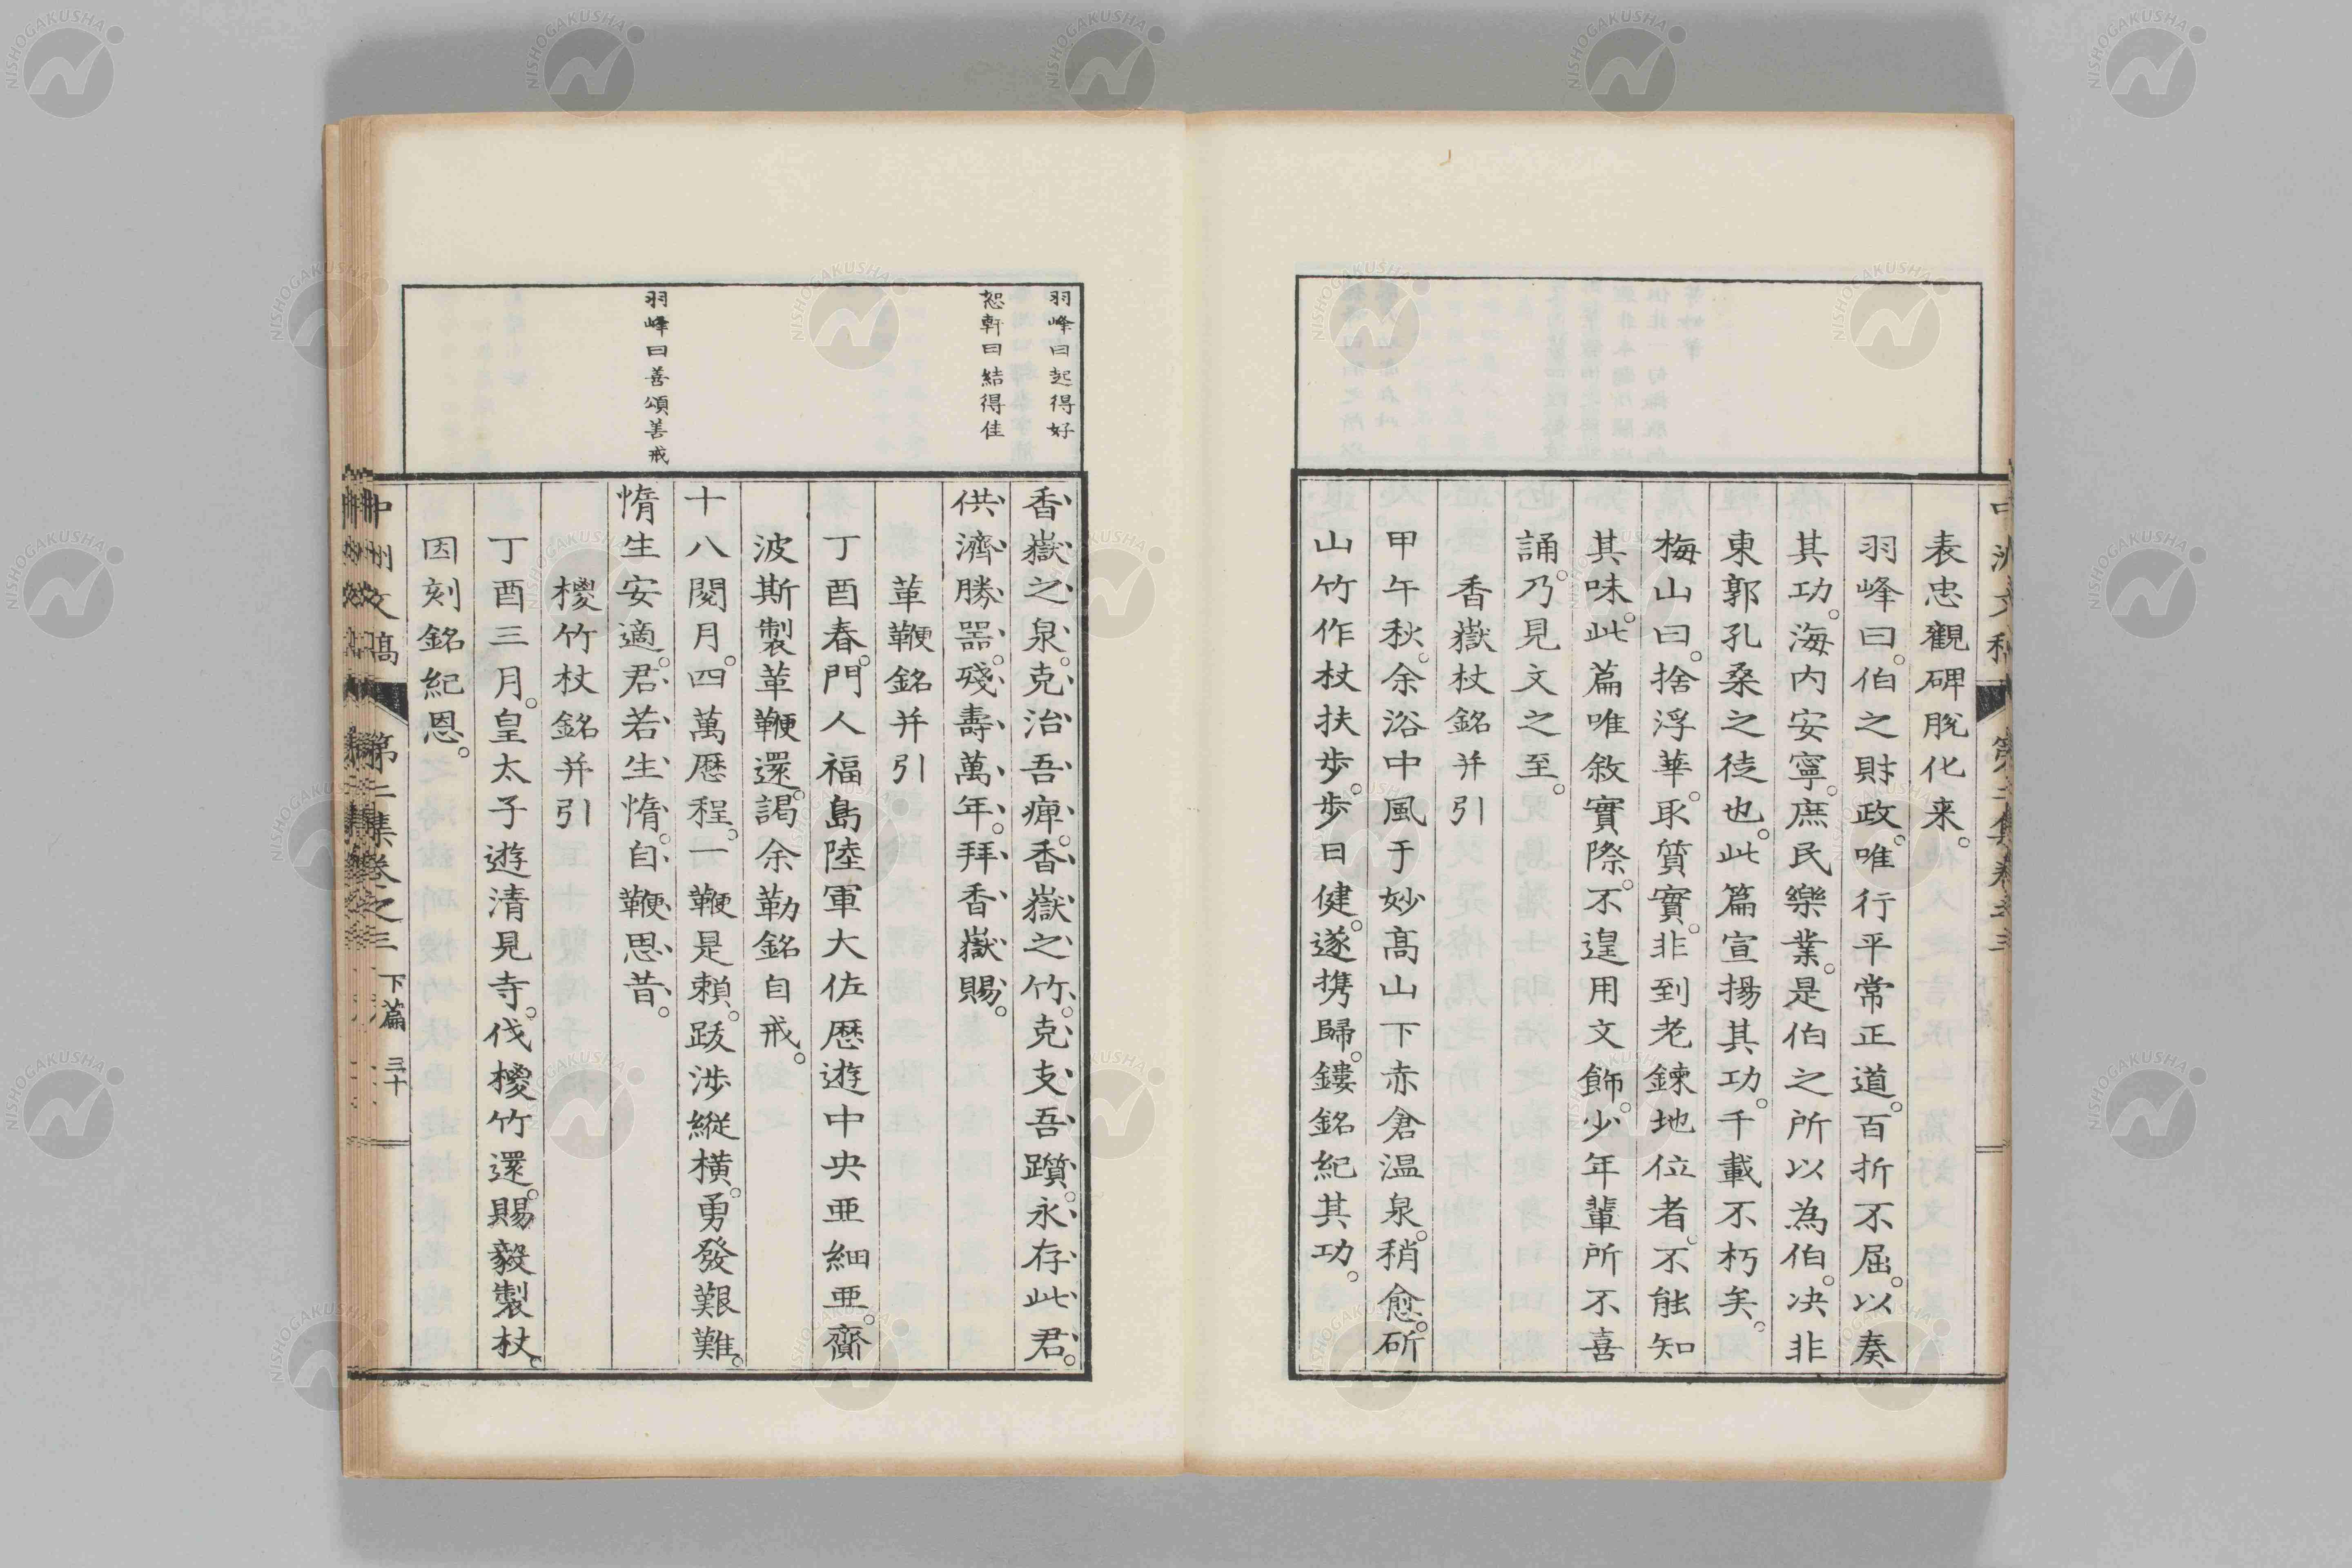 表忠觀碑脫化来。
羽峰曰。伯之財政。唯行平常正道。百折不屈。以奏
其功。海内安寧。庶民樂業。是伯之所以為伯。决非
東郭孔桑之徒也。此篇宣揚其功。千載不朽矣。
梅山曰。捨浮華。取質實。非到老鍊地位者。不能知
其味。此篇唯敘實際。不遑用文飾。少年輩所不喜
誦。乃見文之至。
香嶽杖銘并引
甲午秋。余浴中風于妙高山下赤倉温泉。稍愈。斫
山竹作杖扶步。步日健。遂携歸。鏤銘紀其功。
羽峰曰起得好
恕軒曰結得佳
羽峰曰善頌善戒
香嶽之泉。克治吾痺。香嶽之竹。克支吾躓。永存此君。
供濟勝器。殘壽萬年。拜香嶽賜。
革鞭銘并引
丁酉春。門人福島陸軍大佐歷遊中央亜細亜。齎
波斯製革鞭還。謁余勒銘自戒。
十八閱月。四萬歷程。一鞭是賴。跋渉縱橫。勇發艱難。
惰生安適。君若生惰。自鞭思昔。
椶竹杖銘并引
丁酉三月。皇太子遊清見寺。伐椶竹還。賜毅製杖。
因刻銘紀恩。
中洲文稿 第二集卷之三 下篇 三十
NISHOGAKUSHA